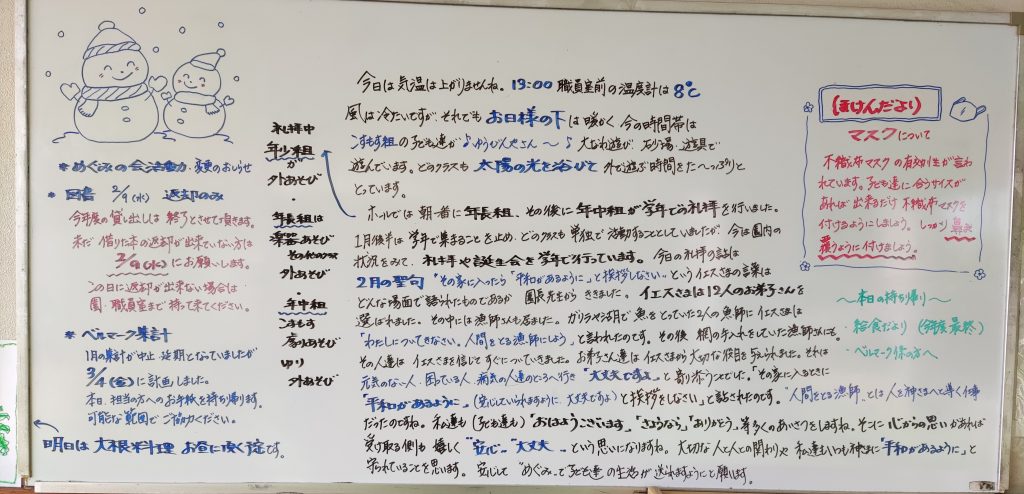 今日は気温は上がりませんね。13:00 職員室前の温度計は8℃
風は冷たいですが、それでもお日様の下は暖かく 今の時間帯は
こすもす組の子ども達が
遊んでいます。どのクラスも 太陽の光を浴びて 外で遊ぶ時間をた〜っぷりと
とっています。
ホールでは 朝一番に年長組、その後に年中組が学年での礼拝を行いました。
1月後半は 学年で集まることを止め、どのクラスも単独で活動することとしていましたが、今は園内の
状況をみて、礼拝や誕生会を学年で行っています。今日の礼拝の話は
2月の聖句 "その家に入ったら「平和があるように」と挨拶しなさい"というイエスさまの言葉は
どんな場面で語られたものであるか 園長先生から ききました。イエスさまは12人のお弟子さんを
選ばれました。その中には漁師さんも居ました。ガリラヤ湖で魚をとっていた2人の漁師にイエスさまは
「わたしについてきなさい。人間をとる漁師にしよう」と言われたのです。その後 網の手入れをしていた漁師さんにも。
その人達は イエスさまを信じて すぐについていきました。お弟子さん達は イエスさまから 大切な役目を与えられました。それは
元気のない人、困っている人、病気の人達のところへ行き "大丈夫ですよ"と寄り添うことでした。「その家に入るときに
「平和があるように」(安心していられますように、大丈夫ですよ)と挨拶をしなさい」と話されたのです。"人間をとる漁師"とは人を神さまへと導く仕事
だったのですね。私達も(子ども達も)"おはようございます""さようなら""ありがとう"等多くのあいさつをしますね。そこに 心からの思いがあれば
受け取る側も 嬉しく "安心" "大丈夫"という思いになりますね。大切な人と人との関わりや 私達もいつも神さまに"平和があるように"と
守られていることを思います。安心して "めぐみ"で子ども達の生活が 送れますようにと願います。
礼拝中
年少組
が
外あそび
・
年長組は
楽器あそび
外あそび
・
年中組
こすもす
ゆり
外あそび
＊めぐみの会活動 変更のおしらせ
＊図書 2/9(水) 返却のみ
今年度の貸し出しは 終りとさせて頂きます。
未だ 借りた本の返却が出来ていない方は
2/9(水)にお願いします。
この日に返却が出来ない場合は
園・職員室まで持って来てください。
＊ベルマーク集計
1月の集計が中止・延期となっていましたが
3/4(金)に計画しました。
本日、担当の方へのお手紙を持ち帰ります。
可能な範囲でご協力ください。
明日は 大根料理 お昼に頂く予定です。
(ほけんだより)
マスクについて
不織布マスクの有効性が言わ
れています。子ども達に合うサイズが
あれば 出来るだけ 不織布マスクを
付けるようにしましょう。しっかり鼻も
覆うように付けましょう。
〜本日の持ち帰り〜
・給食だより
・ベルマーク係の方へ